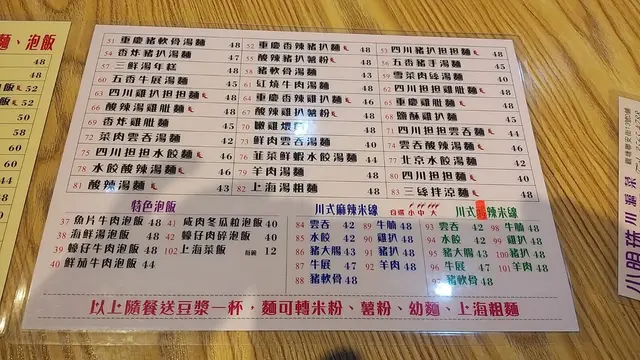 51 重慶豬軟骨湯麵 48
52 重慶香辣豬扒麵 48
53 四川豬扒担担麵 48
54 香炸豬扒湯麵 48
55 酸辣豬扒薯粉 48
56 五香豬手湯麵 45
57 三鮮湯年糕 48
58 豬軟骨湯麵 43
59 雪菜肉絲湯麵 40
60 五香牛展湯麵 45
61 紅燒牛肉湯麵 48
62 四川担担雞肶麵 48
63 四川雞扒担担麵 48
64 重慶香辣雞扒麵 46
65 重慶雞肶麵 48
66 酸辣湯雞肶麵 48
67 酸辣雞扒薯粉 48
68 鹽酥雞扒麵 45
69 香茅雞扒湯麵 45
70 嫩雞煨麵 48
71 四川担担雲吞麵 44
72 菜肉雲吞湯麵 42
73 鮮肉雲吞湯麵 40
74 雲吞酸辣湯麵 46
75 四川担担水餃麵 46
76 韮菜鮮蝦水餃湯麵 44
77 北京水餃湯麵 42
78 水餃酸辣湯麵 46
79 羊肉湯麵 48
80 擔擔湯麵 40
81 酸辣湯麵 43
82 上海湯粗麵 48
83 三絲拌涼麵 48
特色泡飯
37 魚片牛肉泡飯 48
41 咸肉冬瓜粒泡飯 40
38 海鮮湯泡飯 48
42 蠔仔肉碎泡飯 40
39 蠔仔牛肉泡飯 48
102 上海菜飯 每碗 12
40 鮮茄牛肉泡飯 44
川式麻辣米線
自選 小 中 大
84 雲吞 42
89 牛腩 48
85 水餃 42
90 雞扒 48
86 豬大腸 43
91 豬扒 48
87 牛展 47
92 羊肉 48
88 豬軟骨 48
川式酸辣米線
93 雲吞 42
98 牛腩 48
94 水餃 42
99 雞扒 48
95 豬大腸 43
100 豬扒 48
96 牛展 47
101 羊肉 48
97 豬軟骨 48
以上隨餐送豆漿一杯，麵可轉米粉、薯粉、幼麵、上海粗麵
麵、泡飯
48
48
52
52
50
58
64
60
60
60
44